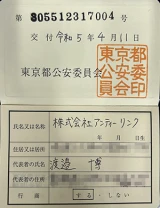 第305512317004号
交付 令和5年4月11日
東京都公安委員会
東京都
公安委
員会印
氏名又は名称
株式会社アンティーリンク
年 月 日生
住居又は居所
代表者の氏名
渡邉 博
年 月 日生
代表者の住所
行商
する・しない